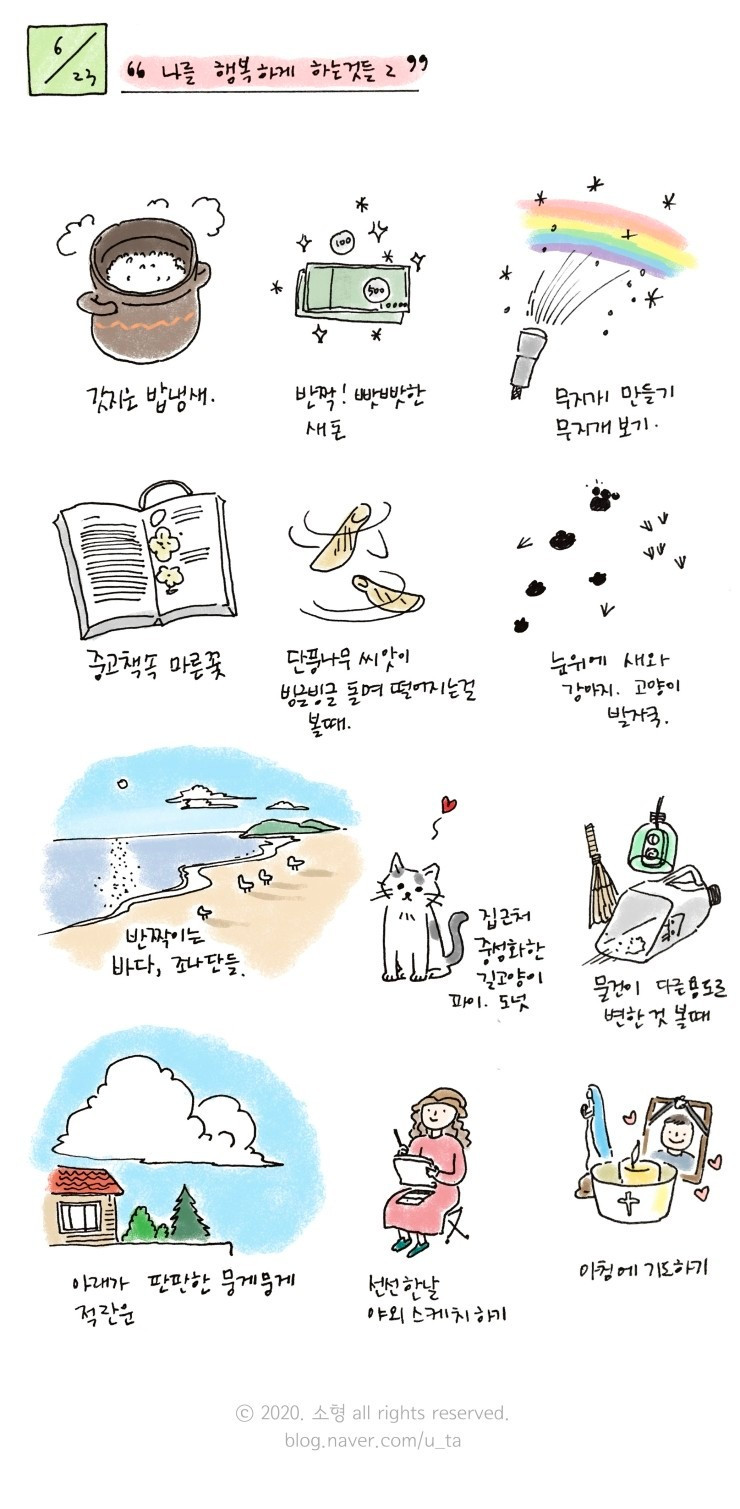 6/23
“ 나를 행복하게 하는것들 2 ”
100
500
10000
갓지은 밥냄새.
반짝! 빳빳한
새돈
무지개 만들기
무지개 보기.
중고책속 마른꽃
단풍나무 씨앗이
빙글빙글 돌며 떨어지는걸
볼때.
눈위에 새와
강아지. 고양이
발자국.
반짝이는
바다, 조나단들.
집근처
중성화한
길고양이
파이. 도넛
물건이 다른용도로
변한것 볼때
아래가 판판한 뭉게뭉게
적란운
선선한날
야외 스케치하기
아침에 기도하기
© 2020. 소형 all rights reserved.
blog.naver.com/u_ta